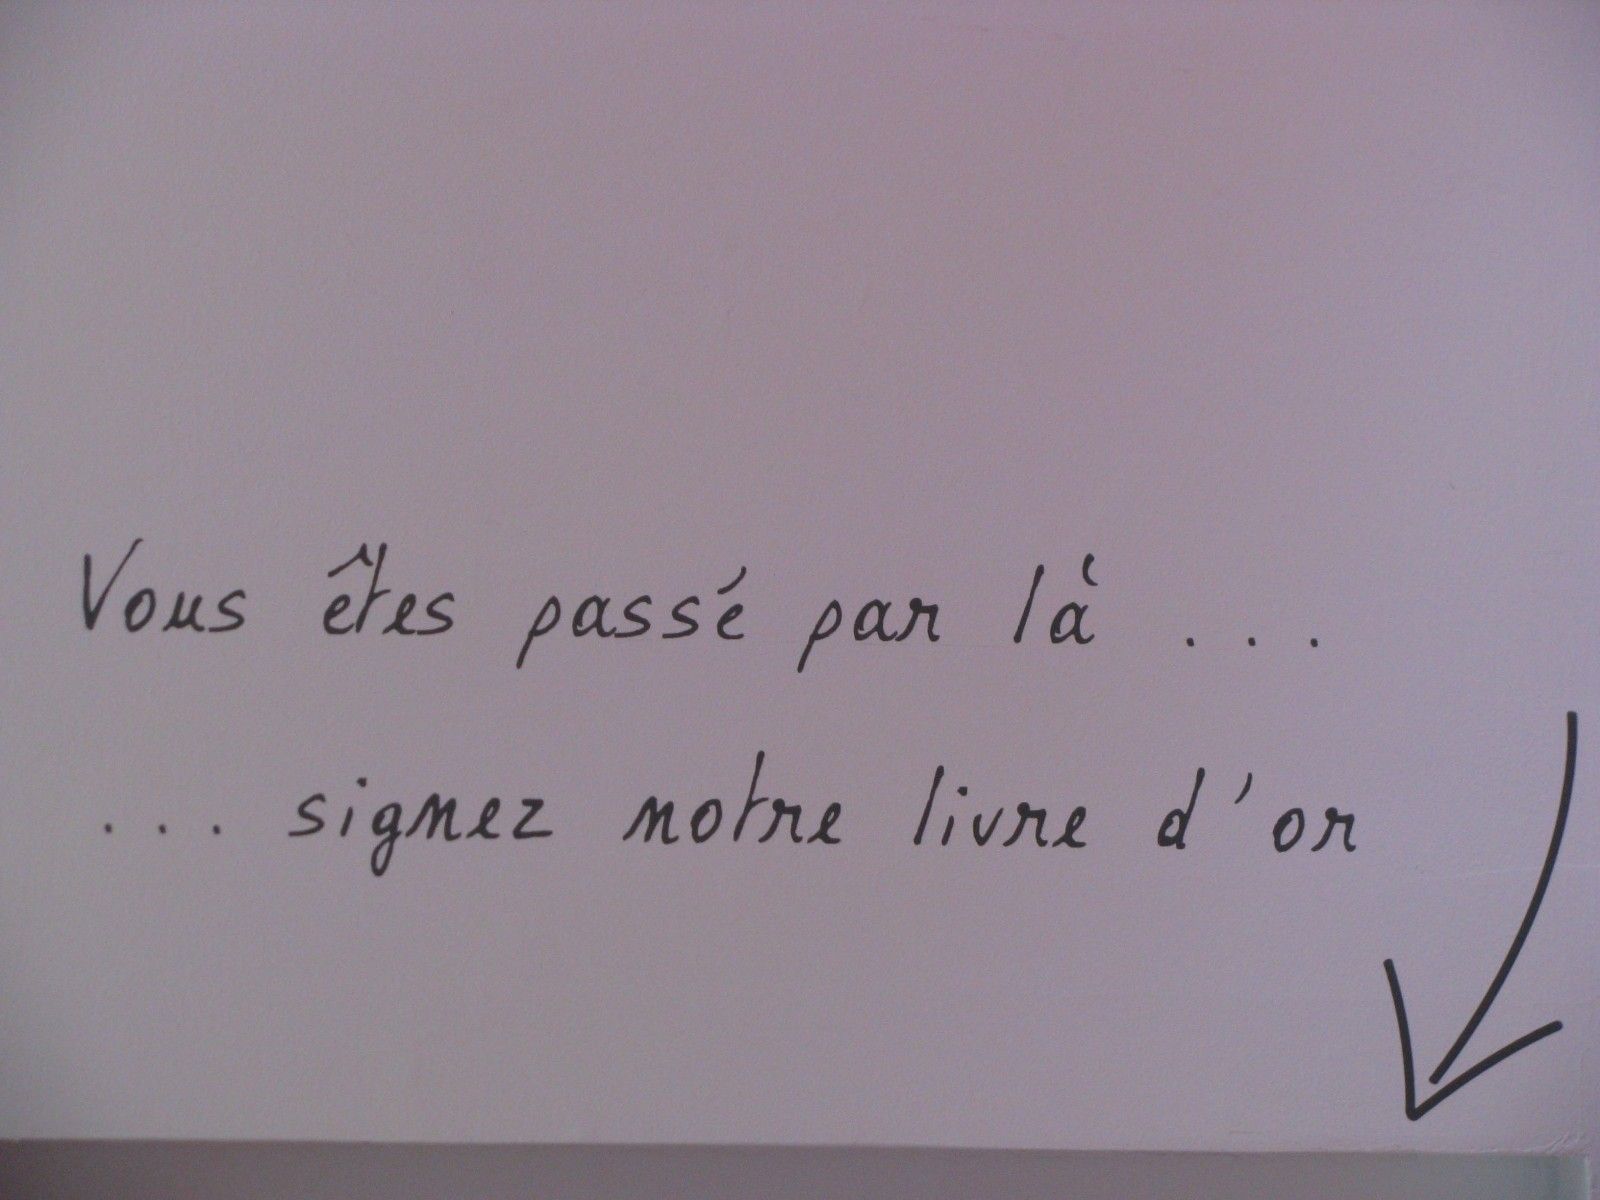 Vous êtes passé par là . . .
. . . signez notre livre d'or